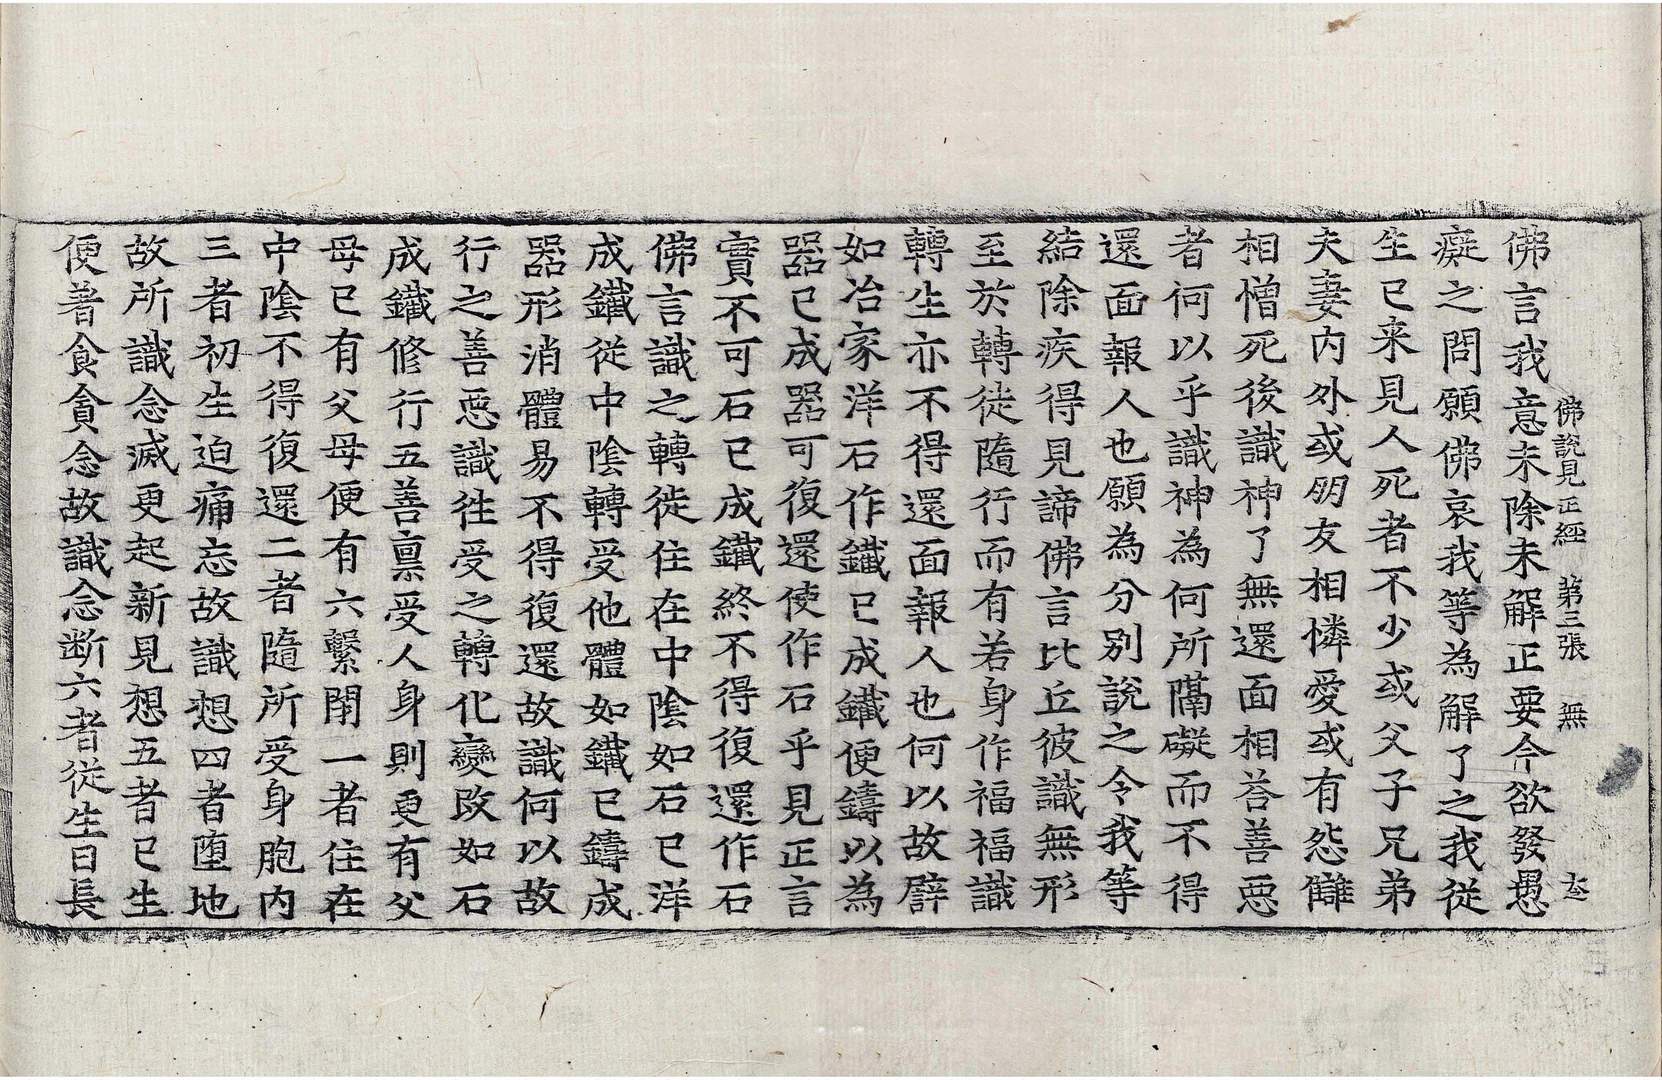 佛說見正經　第三張　無
佛言我意未除未解正要今欲發愚
癡之問願佛哀我等為解了之我從
生已来見人死者不少或父子兄弟
夫妻内外或朋友相憐愛或有怨讎
相憎死後識神了無還面相荅善惡
者何以乎識神為何所隔礙而不得
還面報人也願為分別說之令我等
結除疾得見諦佛言比丘彼識無形
至於轉徙隨行而有若身作福福識
轉生亦不得還面報人也何以故譬
如冶家洋石作鐵已成鐵便鑄以為
器已成器可復還使作石乎見正言
實不可石已成鐵終不得復還作石
佛言識之轉徙住在中陰如石已洋
成鐵從中陰轉受他體如鐵已鑄成
器形消體易不得復還故識何以故
行之善惡識往受之轉化變改如石
成鐵修行五善禀受人身則更有父
母已有父母便有六繫閉一者住在
中陰不得復還二者隨所受身胞内
三者初生迫痛忘故識想四者墮地
故所識念滅更起新見想五者已生
便著食貪念故識念断六者從生日長